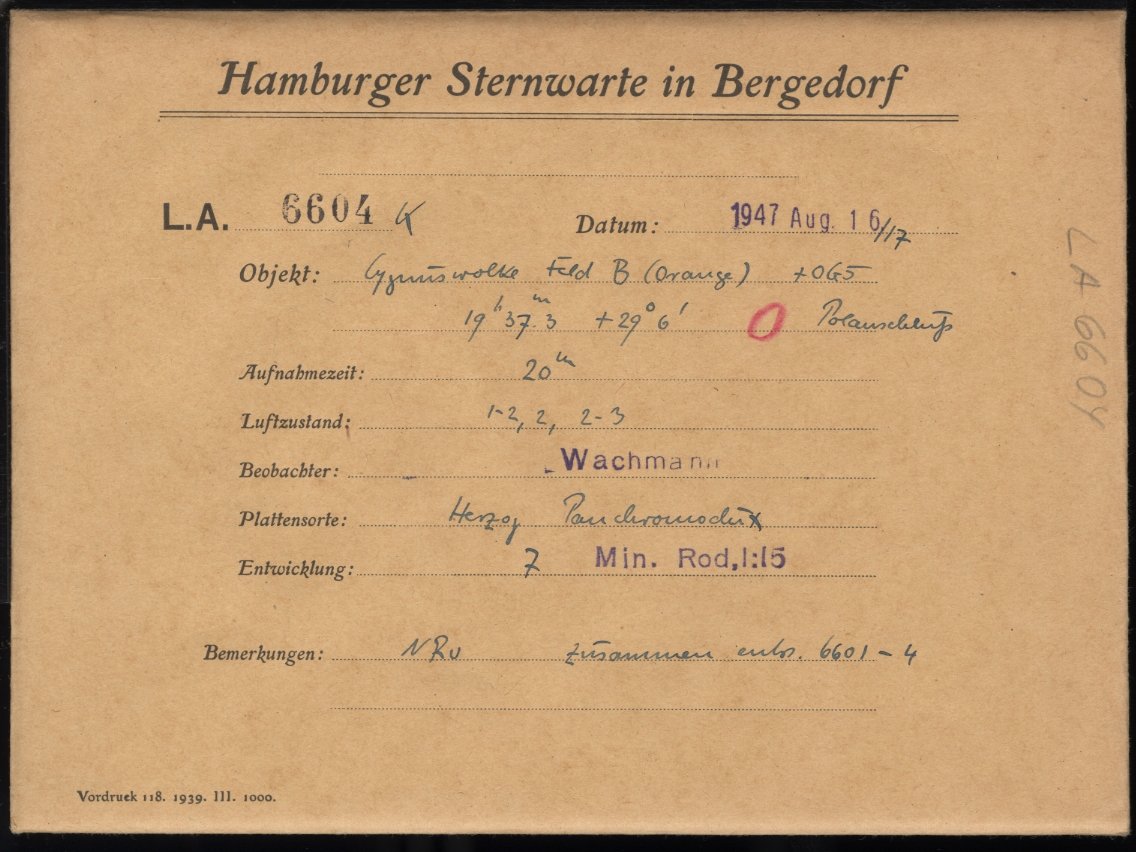 Hamburger Sternwarte in Bergedorf
L.A. 6604 K Datum: 1947 Aug. 16/17
Objekt: Cygnuswolke Feld B (Orange) +OG5
19h 37m.3 +29° 6' O Polanschluß
Aufnahmezeit: 20m
Luftzustand: 1-2, 2, 2-3
Beobachter: Wachmann
Plattensorte: Herzog Panchromodux
Entwicklung: 7 Min. Rod, 1:15
Bemerkungen: NRv zusammen entw. 6601-4
Vordruck 118. 1939. III. 1000.
LA 6604